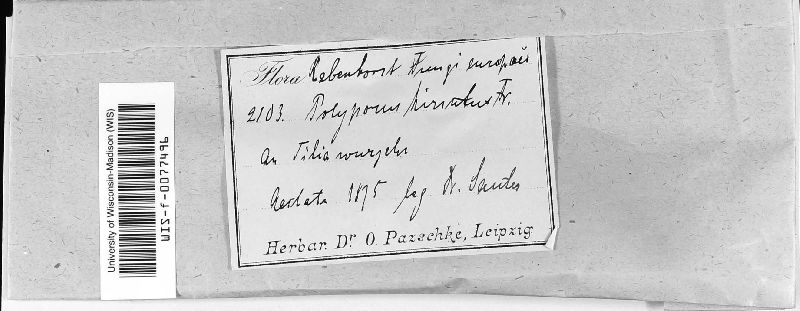 Flora Rabenhorst. Fungi europaei
2103. Polyporus hirsutus Fr.
An Tiliawurzeln
Aestate 1875 leg Dr. Sauter
Herbar. Dr O. Pazschke, Leipzig
University of Wisconsin-Madison (WIS)
WIS-f-0077496